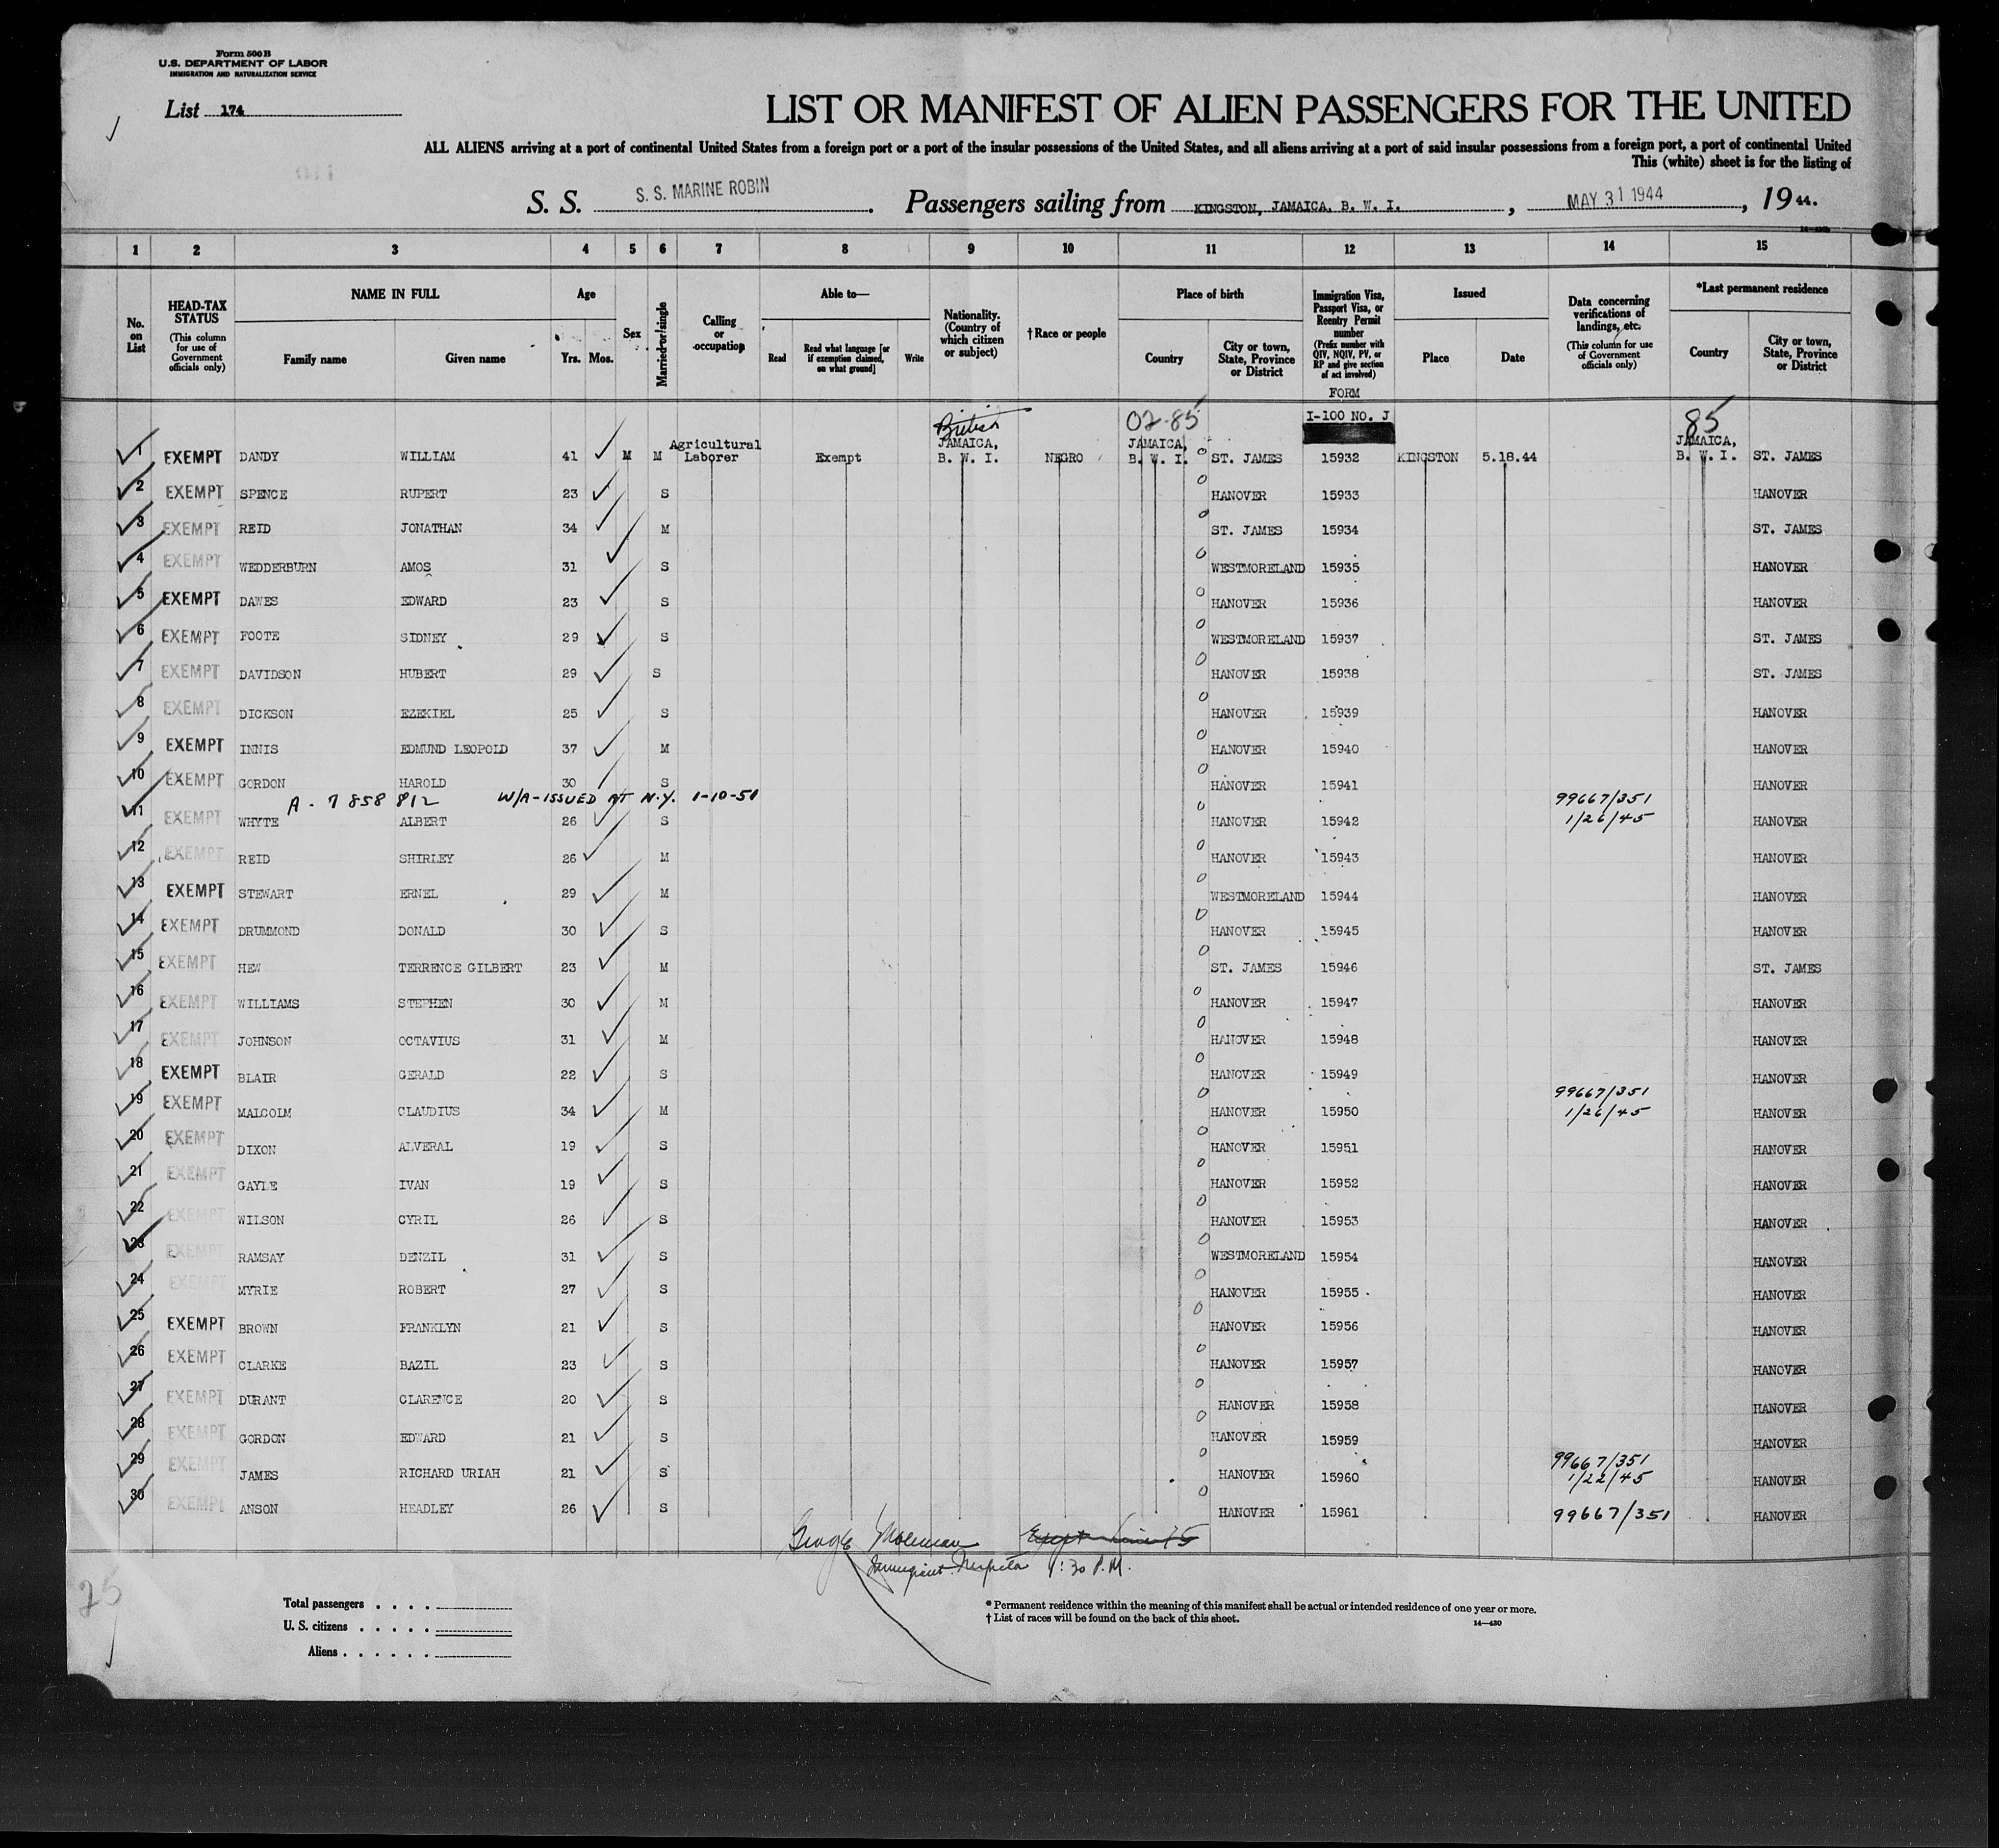 Form 500 B
U.S. DEPARTMENT OF LABOR
IMMIGRATION AND NATURALIZATION SERVICE
List 174
LIST OR MANIFEST OF ALIEN PASSENGERS FOR THE UNITED
ALL ALIENS arriving at a port of continental United States from a foreign port or a port of the insular possessions of the United States, and all aliens arriving at a port of said insular possessions from a foreign port, a port of continental United
This (white) sheet is for the listing of
S. S. S. S. MARINE ROBIN. Passengers sailing from KINGSTON, JAMAICA, B. W. I., MAY 31 1944, 19 44.
1 2 3 4 5 6 7 8 9 10 11 12 13 14 15
No. on List
HEAD-TAX STATUS (This column for use of Government officials only)
NAME IN FULL Family name Given name
Age Yrs. Mos.
Sex
Married or single
Calling or occupation
Able to— Read Read what language [or if exemption claimed, on what ground] Write
Nationality. (Country of which citizen or subject)
† Race or people
Place of birth Country City or town, State, Province or District
Immigration Visa, Passport Visa, or Reentry Permit number (Prefix number with QIV, NQIV, PV, or RP and give section of act involved)
Issued Place Date
Data concerning verifications of landings, etc. (This column for use of Government officials only)
*Last permanent residence Country City or town, State, Province or District
FORM
I-100 NO. J
British 02-85 85
1 EXEMPT DANDY WILLIAM 41 M M Agricultural Laborer Exempt JAMAICA, B. W. I. NEGRO JAMAICA, B. W. I. 0 ST. JAMES 15932 KINGSTON 5.18.44 JAMAICA, B. W. I. ST. JAMES
2 EXEMPT SPENCE RUPERT 23 S 0 HANOVER 15933 HANOVER
3 EXEMPT REID JONATHAN 34 M 0 ST. JAMES 15934 ST. JAMES
4 EXEMPT WEDDERBURN AMOS 31 S 0 WESTMORELAND 15935 HANOVER
5 EXEMPT DAWES EDWARD 23 S 0 HANOVER 15936 HANOVER
6 EXEMPT FOOTE SIDNEY 29 S 0 WESTMORELAND 15937 ST. JAMES
7 EXEMPT DAVIDSON HUBERT 29 S 0 HANOVER 15938 ST. JAMES
8 EXEMPT DICKSON EZEKIEL 25 S 0 HANOVER 15939 HANOVER
9 EXEMPT INNIS EDMUND LEOPOLD 37 M 0 HANOVER 15940 HANOVER
10 EXEMPT GORDON HAROLD 30 S 0 HANOVER 15941 HANOVER
A-7858812 W/A-ISSUED AT N.Y. 1-10-51
11 EXEMPT WHYTE ALBERT 26 S 0 HANOVER 15942 99667/351 1/26/45 HANOVER
12 EXEMPT REID SHIRLEY 26 M 0 HANOVER 15943 HANOVER
13 EXEMPT STEWART ERNEL 29 M 0 WESTMORELAND 15944 HANOVER
14 EXEMPT DRUMMOND DONALD 30 S 0 HANOVER 15945 HANOVER
15 EXEMPT HEW TERRENCE GILBERT 23 M 0 ST. JAMES 15946 ST. JAMES
16 EXEMPT WILLIAMS STEPHEN 30 M 0 HANOVER 15947 HANOVER
17 EXEMPT JOHNSON OCTAVIUS 31 M 0 HANOVER 15948 HANOVER
18 EXEMPT BLAIR GERALD 22 S 0 HANOVER 15949 HANOVER
19 EXEMPT MALCOLM CLAUDIUS 34 M 0 HANOVER 15950 99667/351 1/26/45 HANOVER
20 EXEMPT DIXON ALVERAL 19 S 0 HANOVER 15951 HANOVER
21 EXEMPT GAYLE IVAN 19 S 0 HANOVER 15952 HANOVER
22 EXEMPT WILSON CYRIL 26 S 0 HANOVER 15953 HANOVER
23 EXEMPT RAMSAY DENZIL 31 S 0 WESTMORELAND 15954 HANOVER
24 EXEMPT MYRIE ROBERT 27 S 0 HANOVER 15955 HANOVER
25 EXEMPT BROWN FRANKLYN 21 S 0 HANOVER 15956 HANOVER
26 EXEMPT CLARKE BAZIL 23 S 0 HANOVER 15957 HANOVER
27 EXEMPT DURANT CLARENCE 20 S 0 HANOVER 15958 HANOVER
28 EXEMPT GORDON EDWARD 21 S 0 HANOVER 15959 HANOVER
29 EXEMPT JAMES RICHARD URIAH 21 S 0 HANOVER 15960 99667/351 1/22/45 HANOVER
30 EXEMPT ANSON HEADLEY 26 S 0 HANOVER 15961 99667/351 HANOVER
George
Immigrant Inspector 1:30 P.M.
25
Total passengers
U. S. citizens
Aliens
* Permanent residence within the meaning of this manifest shall be actual or intended residence of one year or more.
† List of races will be found on the back of this sheet.
14—430